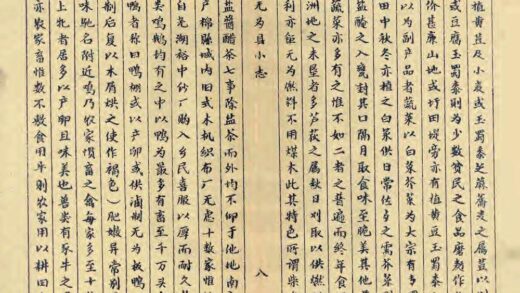 植黄荳及小麦或玉蜀黍芝麻蕎麦之属荳以
或豆腐玉蜀黍則为少数贫民之食品磨麪作
价甚廉山地或圩田堤旁亦有植黄豆玉蜀黍
以为副产品者蔬菜以白菜芥菜为大宗有于
田中秋冬亦植之白菜供日常佐多之需芥菜則
盐醃之入瓮封其口隔月取食味至脆美其他
蔬菜亦多有之惟不如二者之普遍而終年食
洲地之未垦者多芦荻之属秋日刈取以供燃
利亦鉅无为燃料不用煤木此其特色所謂柴
无为县小志 八
盐酱醋茶七事除盐茶而外均不仰于他地南
产棉 城内旧式木机织布厂无慮十数家惟
自芜湖裕中纱厂购入乡民喜服以厚而耐久
类鸭鹅均有之中以鸭为最多有畜至千万头
者称曰鸭棚或以产卵或供卤制无为板鸭
制后复以木屑烘之使作褐色）肥嫩异常别
味驰名附近鸡乃农家惯畜之禽每家多至十
上牝者居多以产卵且味美也兽类有豕牛之
亦农家畜惟数不敷食用牛則农家用以耕田